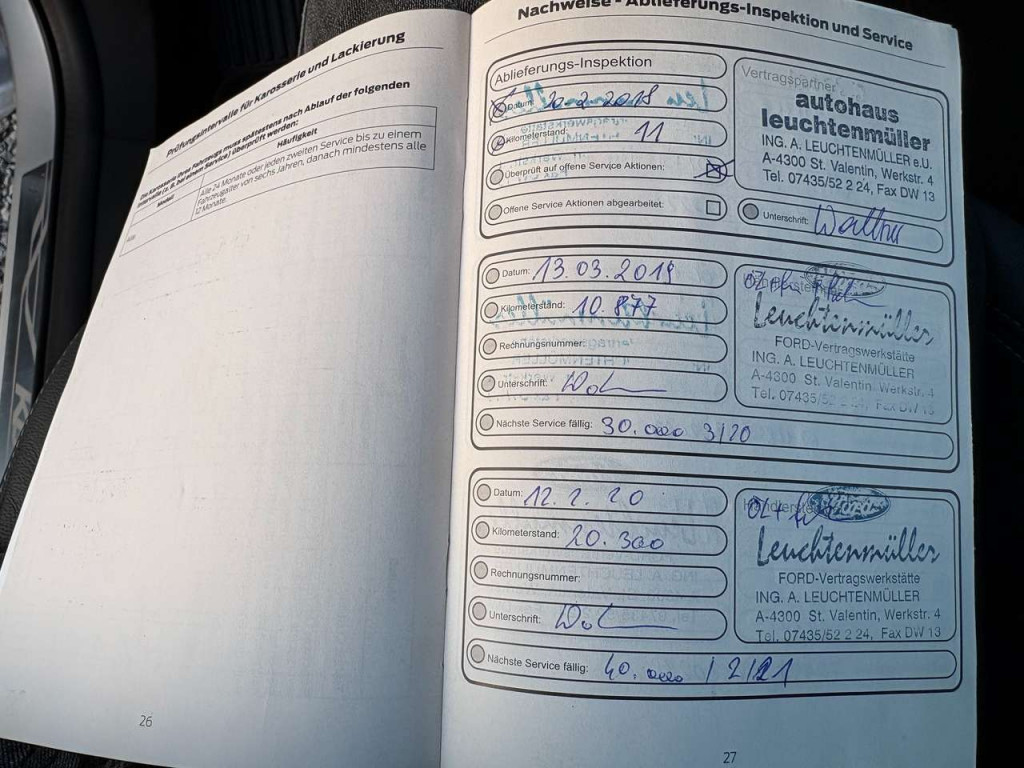 Prüfungsintervalle für Karosserie und Lackierung
Die Karosserie Ihres Fahrzeugs muss spätestens nach Ablauf der folgenden
Intervalle (z. B. bei einem Service) überprüft werden:
Modell
Häufigkeit
Alle
Alle 24 Monate oder jeden zweiten Service bis zu einem
Fahrzeugalter von sechs Jahren, danach mindestens alle
12 Monate.
26
Nachweise - Ablieferungs-Inspektion und Service
Ablieferungs-Inspektion
Datum:
Kilometerstand: 11
Überprüft auf offene Service Aktionen:
Offene Service Aktionen abgearbeitet:
Vertragspartner
autohaus
leuchtenmüller
ING. A. LEUCHTENMÜLLER e.U.
A-4300 St. Valentin, Werkstr. 4
Tel. 07435/52 2 24, Fax DW 13
Unterschrift:
Datum: 13.03.2019
Kilometerstand: 10.877
Rechnungsnummer:
Unterschrift:
Nächste Service fällig: 30.000 3/20
Leuchtenmüller
FORD-Vertragswerkstätte
ING. A. LEUCHTENMÜLLER
A-4300 St. Valentin, Werkstr. 4
Tel. 07435/52 2 24, Fax DW 13
Datum: 12. 2. 20
Kilometerstand: 20.300
Rechnungsnummer:
Unterschrift:
Nächste Service fällig: 40.000 / 2/21
Leuchtenmüller
FORD-Vertragswerkstätte
ING. A. LEUCHTENMÜLLER
A-4300 St. Valentin, Werkstr. 4
Tel. 07435/52 2 24, Fax DW 13
27